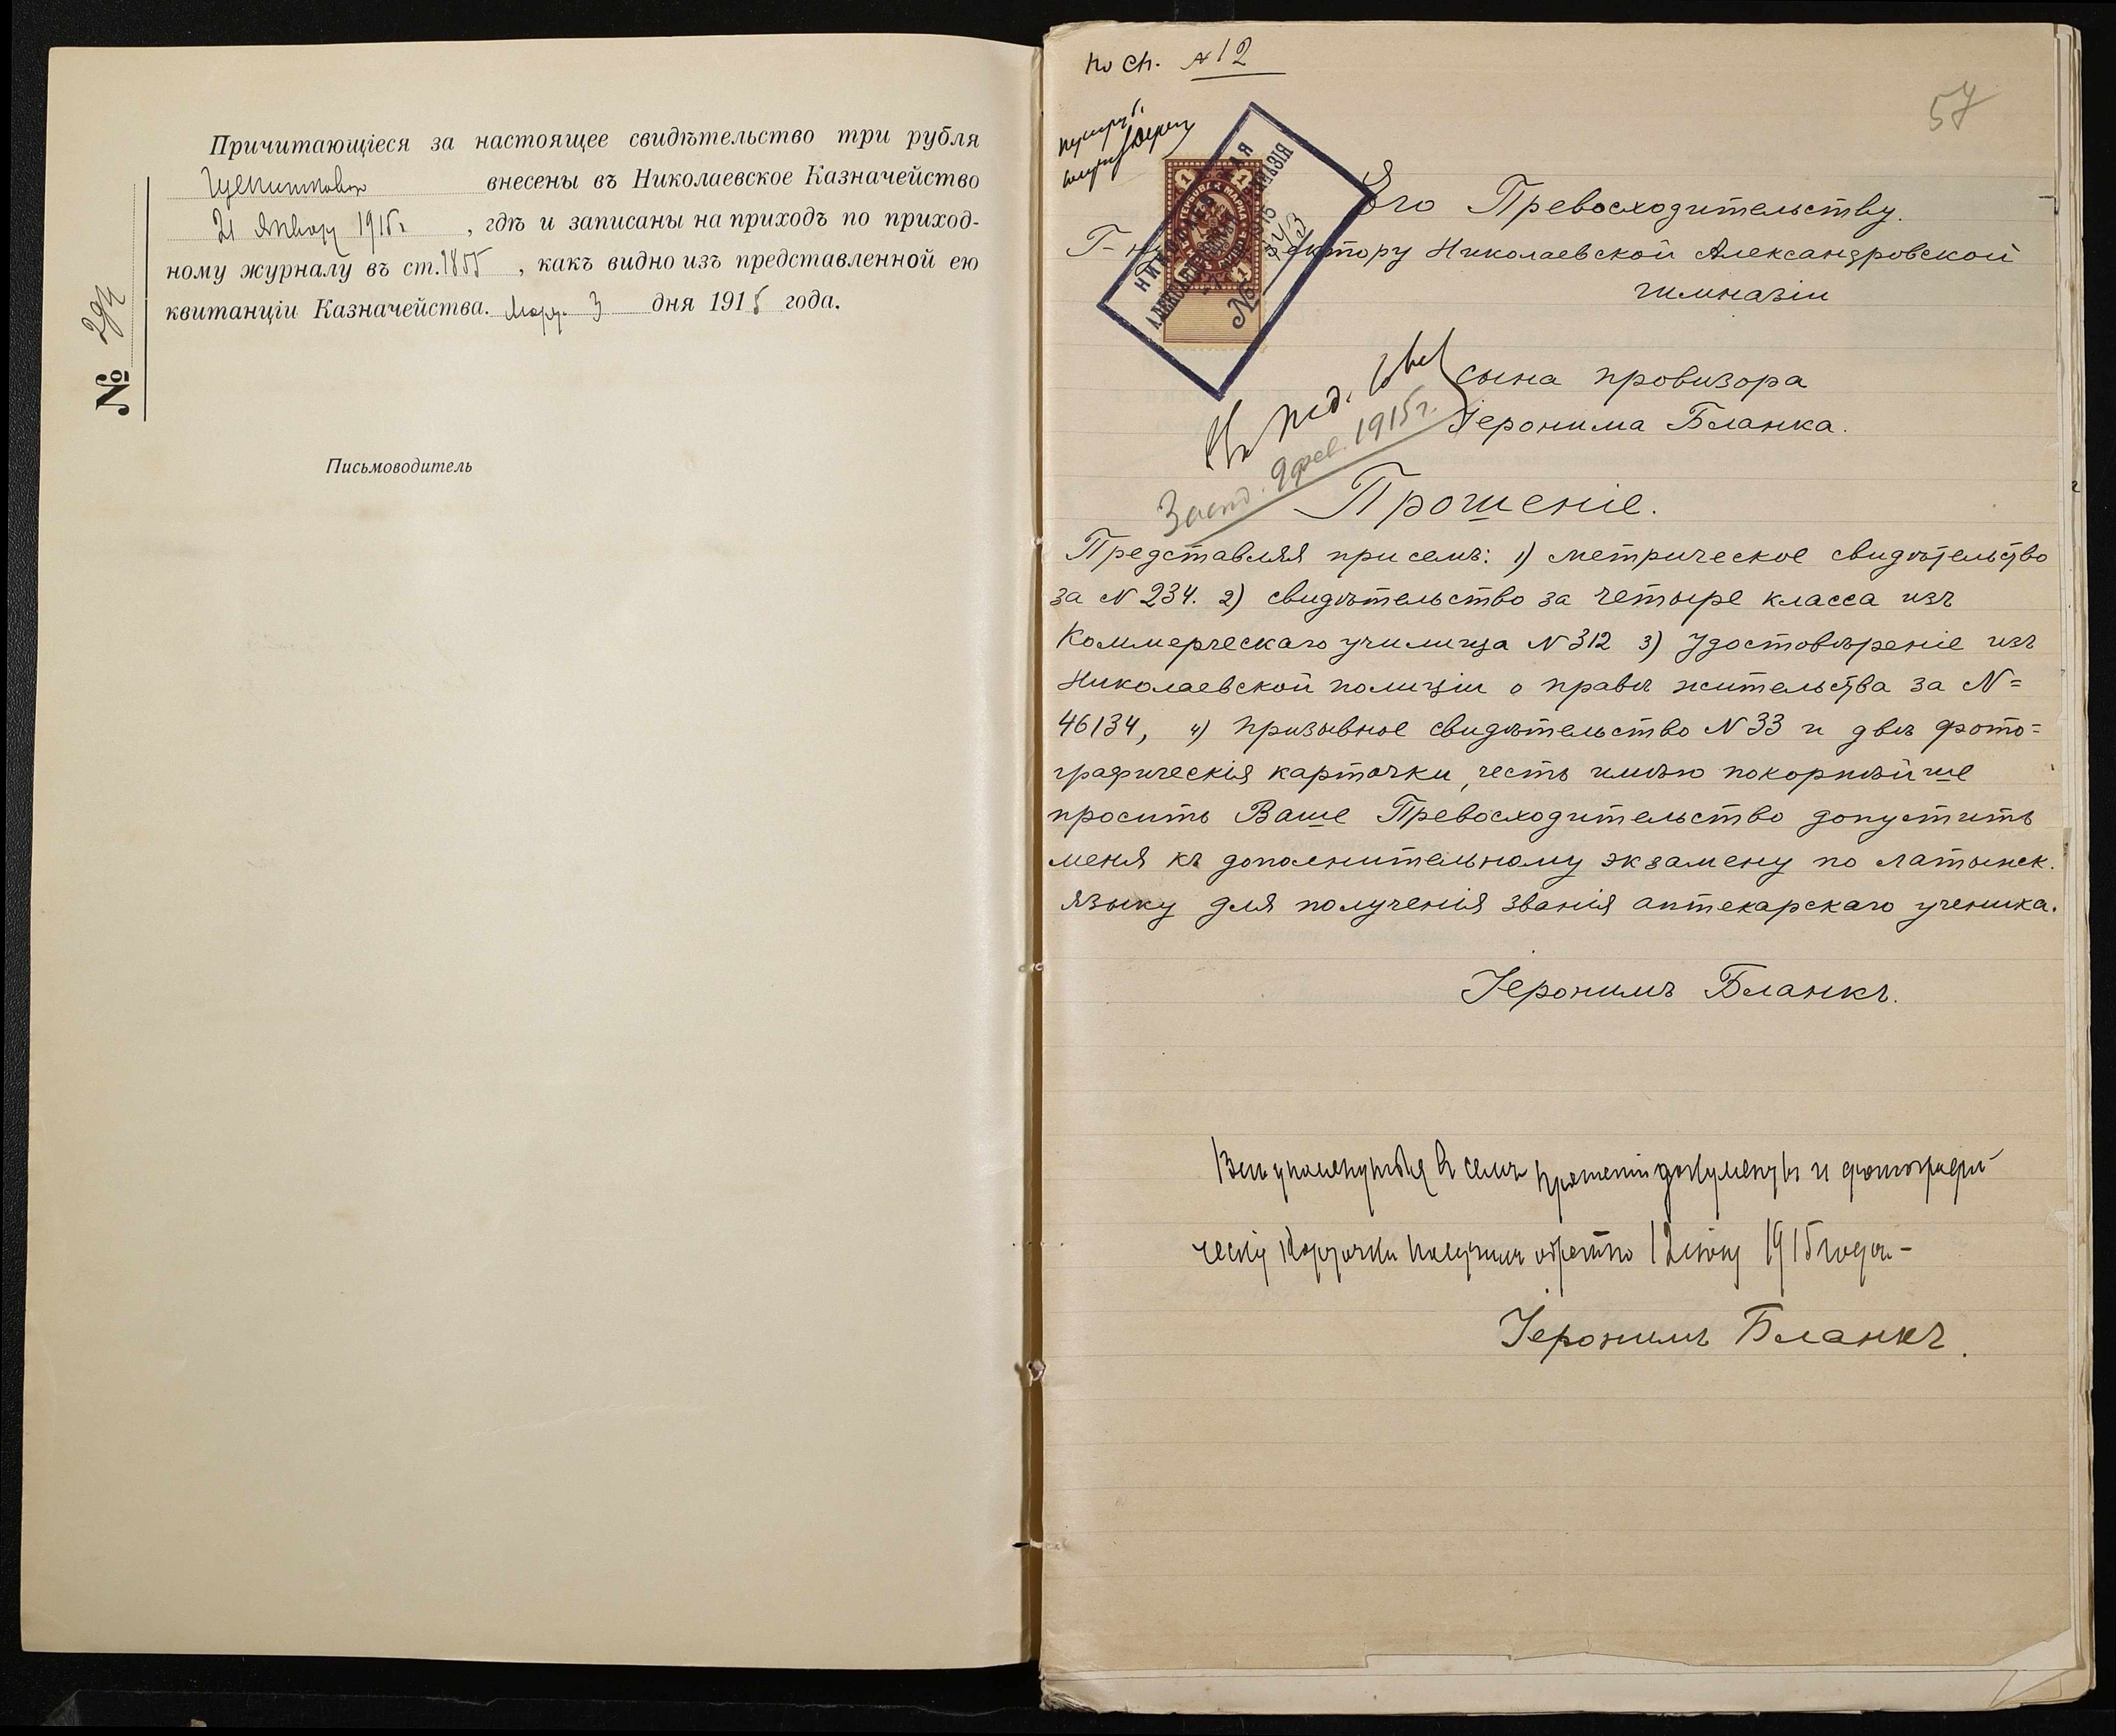 Причитающіеся за настоящее свидѣтельство три рубля
внесены въ Николаевское Казначейство
21 Января 1915 г. , гдѣ и записаны на приходъ по приход-
ному журналу въ ст. 1855 , какъ видно изъ представленной ею
квитанціи Казначейства. Мар. 3 дня 1915 года.
№ 294
Письмоводитель
по сп. № 12
57
Его Превосходительству.
Г-ну Директору Николаевской Александровской
гимназіи
сына провизора
Іеронима Бланка.
Въ пед. Сов.
Засѣд. 9 фев. 1915 г.
Прошеніе.
Представляя при семъ: 1) метрическое свидѣтельство
за N 234. 2) свидѣтельство за четыре класса изъ
Коммерческаго училища N 312 3) Удостовѣреніе изъ
Николаевской полиціи о правѣ жительства за N=
46134, 4) призывное свидѣтельство N 33 и двѣ фото=
графическія карточки, честь имѣю покорнѣйше
просить Ваше Превосходительство допустить
меня къ дополнительному экзамену по латынск.
языку для полученія званія аптекарскаго ученика.
Іеронимъ Бланкъ.
Всѣ упомянутые въ семъ прошеніи документы и фотографи-
ческія карточки получилъ обратно 12 іюня 1915 года -
Іеронимъ Бланкъ.